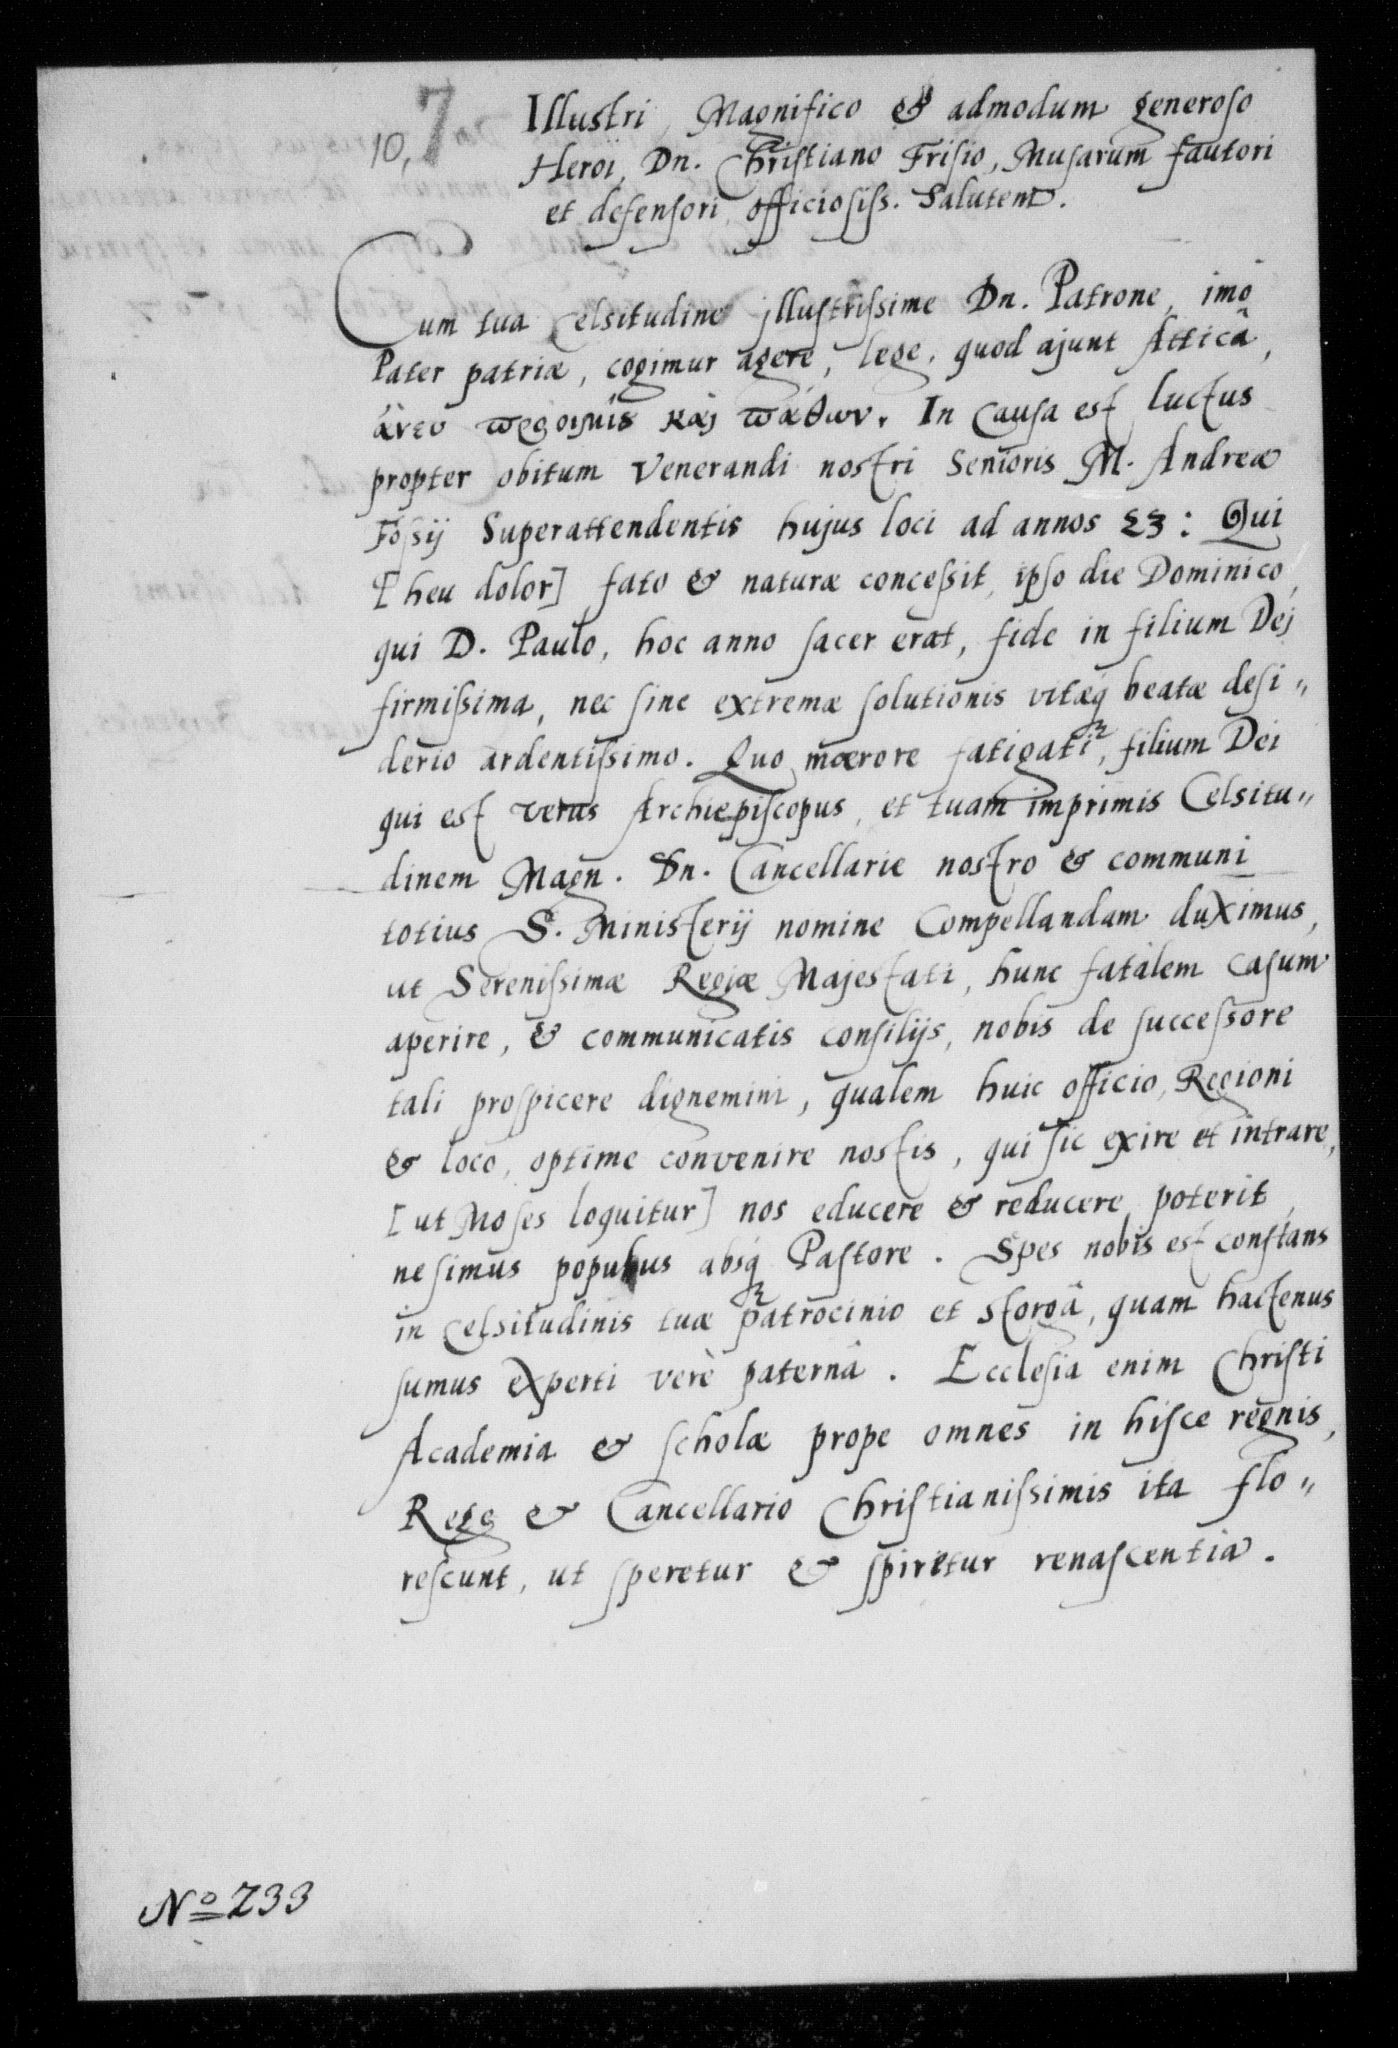 10, 7
Illustri, Magnifico & admodum generoso
Heroi, Dn. Christiano Frisio, Musarum fautori
et defensori officiosiss. Salutem.
Cum tua Celsitudine illustrissime Dn. Patrone, imò
Pater patriæ, cogimur agere, lege, quod ajunt Atticâ,
ἄνευ προοιμίȣ καὶ παθων. In causa est luctus
propter obitum Venerandi nostri Senioris M. Andreæ
Fossij Superattendentis hujus loci ad annos 23: Qui
[heu dolor] fato & naturæ concessit, ipso die Dominico,
qui D. Paulo, hoc anno sacer erat, fide in filium Dej
firmissima, nec sine extremæ solutionis vitæq́ beatæ desi„
derio ardentissimo. Quo mœrore fatigati, filium Dei
qui est verus Archiepiscopus, et tuam imprimis Celsitu„
dinem Magn. Dn. Cancellarie nostro & communi
totius S. Ministerij nomine Compellandam duximus,
ut Serenissimæ Regiæ Majestati, hunc fatàlem casum
aperire, & communicatis consilijs, nobis de successore
tali prospicere dignemini, qualem huic officio, Regioni
& loco, optime convenire nostis, qui sic exire et intrare,
[ut Moses loquitur] nos educere & reducere poterit,
ne simus populus absq́ Pastore. Spes nobis est constans
in Celsitudinis tuæ patrocinio et storgâ, quam hactenus
sumus experti verè paternâ. Ecclesia enim Christi
Academia & scholæ prope omnes in hisce regnis,
Rege & Cancellario Christianissimis ita flo„
rescunt, ut speretur & spiretur renascentia.
No 233